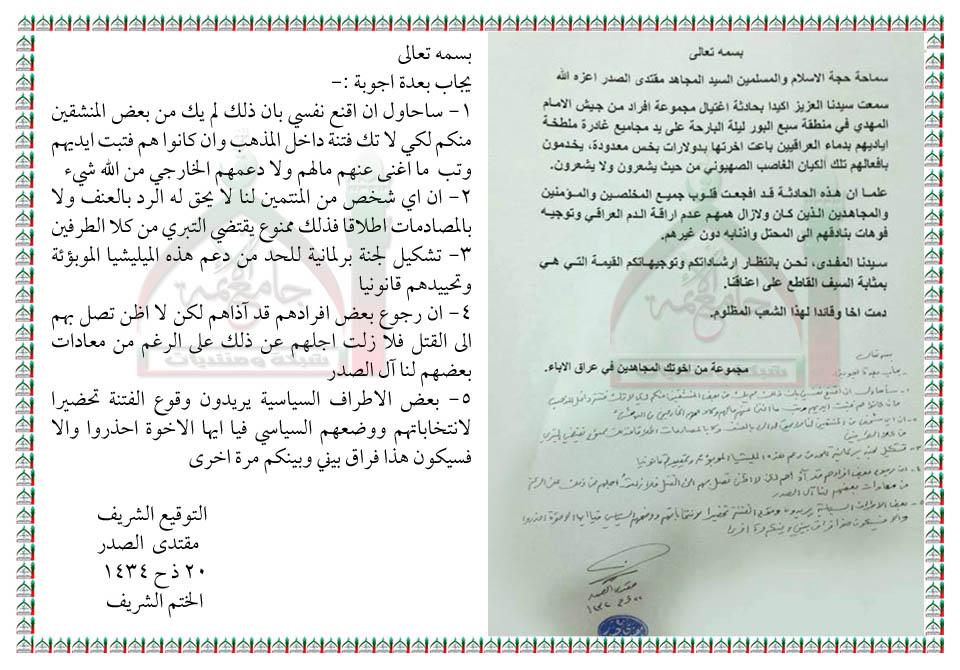 بسمه تعالى
سماحة حجة الاسلام والمسلمين السيد المجاهد مقتدى الصدر اعزه الله
سمعت سيدنا العزيز اكيدا بحادثة اغتيال مجموعة افراد من جيش الامام
المهدي في منطقة سبع البور ليلة البارحة على يد مجاميع غادرة ملطخة
اياديهم بدماء العراقيين باعت اخرتها بدولارات بخس معدودة، يخدمون
بافعالهم تلك الكيان الغاصب الصهيوني من حيث يشعرون ولا يشعرون.
علما ان هذه الحادثة قد افجعت قلوب جميع المخلصين والمؤمنين
والمجاهدين الذين كان ولازال همهم عدم اراقة الدم العراقي وتوجيه
فوهات بنادقهم الى المحتل واذنابه دون غيرهم.
سيدنا المفدى، نحن بانتظار ارشاداتكم وتوجيهاتكم القيمة التي هي
بمثابة السيف القاطع على اعناقنا.
دمت اخا وقائدا لهذا الشعب المظلوم.
مجموعة من اخوتك المجاهدين في عراق الاباء.
بسمه تعالى
يجاب بعدة اجوبة :-
١- ساحاول ان اقنع نفسي بان ذلك لم يك من بعض المنشقين
منكم لكي لا تك فتنة داخل المذهب وان كانوا هم فتبت ايديهم
وتب ما اغنى عنهم مالهم ولا دعمهم الخارجي من الله شيء
٢- ان اي شخص من المنتمين لنا لا يحق له الرد بالعنف ولا
بالمصادمات اطلاقا فذلك ممنوع يقتضي التبري من كلا الطرفين
٣- تشكيل لجنة برلمانية للحد من دعم هذه الميليشيا الموبؤئة
وتحييدهم قانونيا
٤- ان رجوع بعض افرادهم قد آذاهم لكن لا اظن تصل بهم
الى القتل فلا زلت اجلهم عن ذلك على الرغم من معادات
بعضهم لنا آل الصدر
٥- بعض الاطراف السياسية يريدون وقوع الفتنة تحضيرا
لانتخاباتهم ووضعهم السياسي فيا ايها الاخوة احذروا والا
فسيكون هذا فراق بيني وبينكم مرة اخرى
التوقيع الشريف
مقتدى الصدر
٢٠ ذح ١٤٣٤
الختم الشريف
جامع ائمة
شبكة ومنتديات